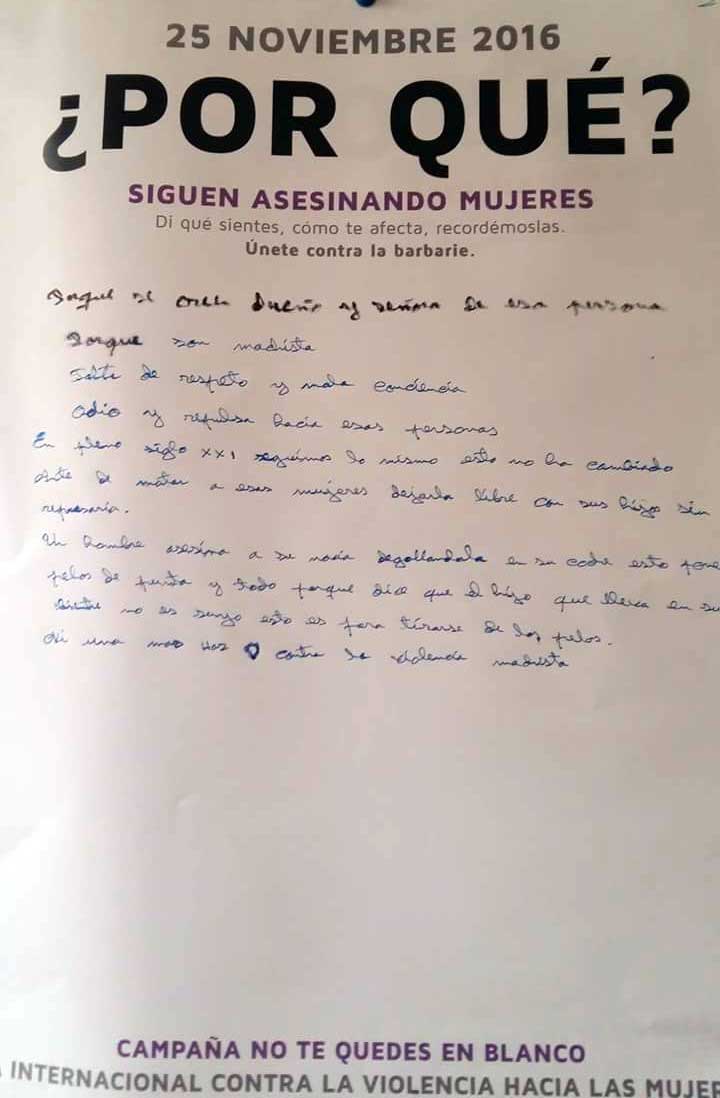 25 NOVIEMBRE 2016
¿POR QUÉ?
SIGUEN ASESINANDO MUJERES
Di qué sientes, cómo te afecta, recordémoslas.
Únete contra la barbarie.
se dueño y señora de esa persona
Porque son machista
Falta de respeto y mala conciencia
Odio y repulsa hacia esas personas
En pleno siglo XXI seguimos lo mismo esto no ha cambiado
Ante de matar a esas mujeres dejarla libre con sus hijos sin
represaria.
Un hombre asesina a su novia degollandola en su coche esto pone
pelos de punta y todo porque dice que el hijo que lleva en su
vientre no es suyo esto es para tirarse de los pelos.
Ni una mas contra la violencia machista
CAMPAÑA NO TE QUEDES EN BLANCO
INTERNACIONAL CONTRA LA VIOLENCIA HACIA LAS MUJER